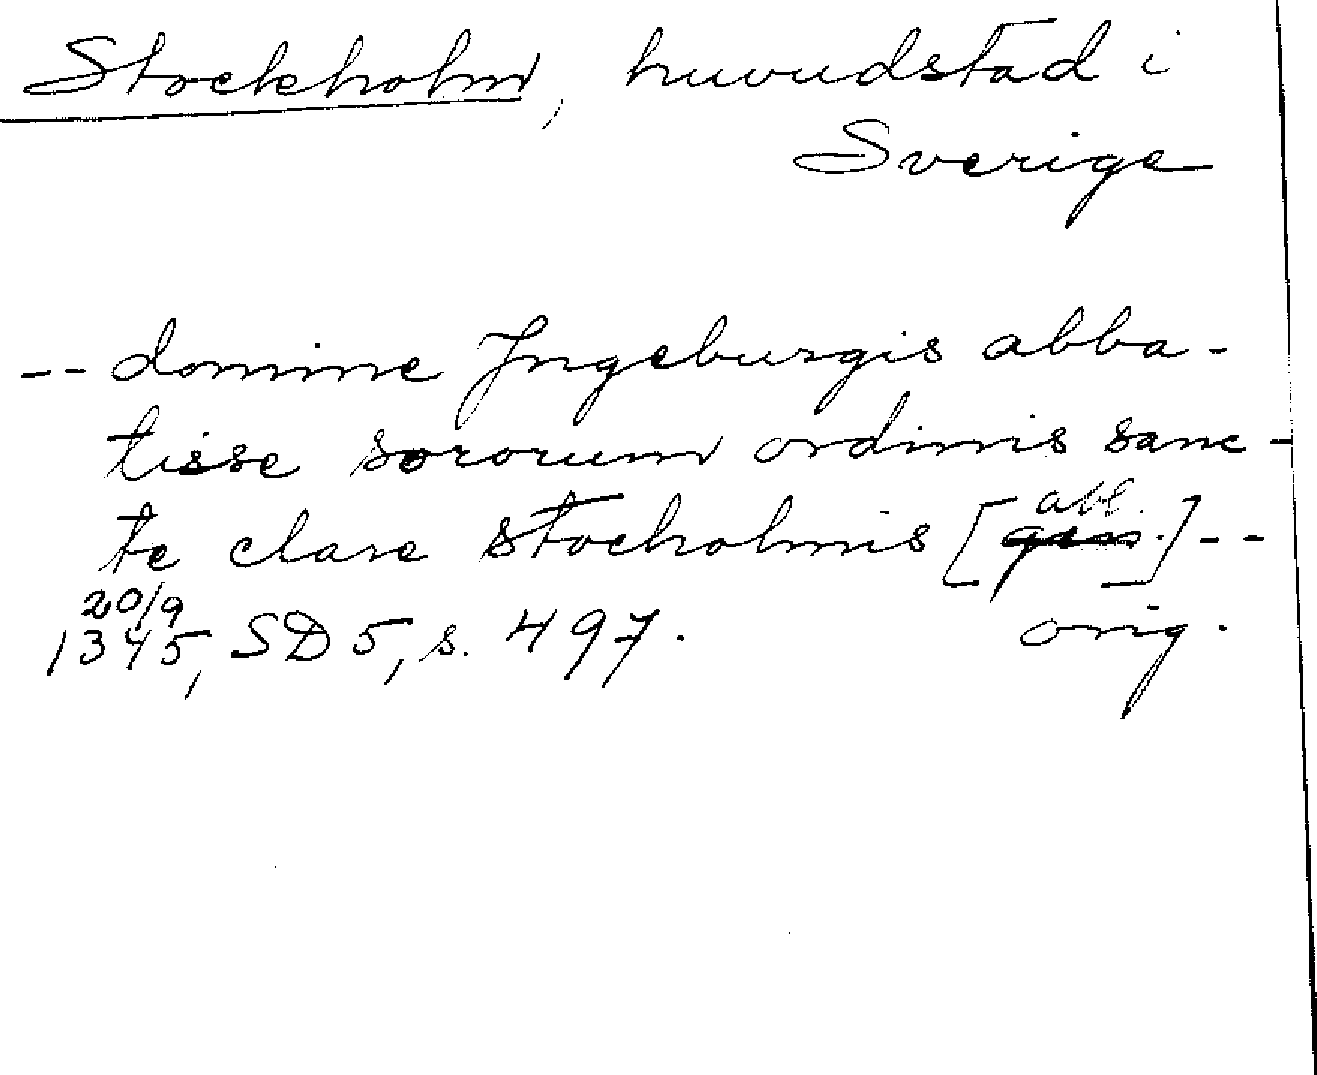 Stockholm, huvudstad i
Sverige
-- domine Jngeburgis abba-
tisse sororum ordinis sanc-
te clare stocholmis [abl.] --
20/9
1345, SD 5, s. 497. orig.